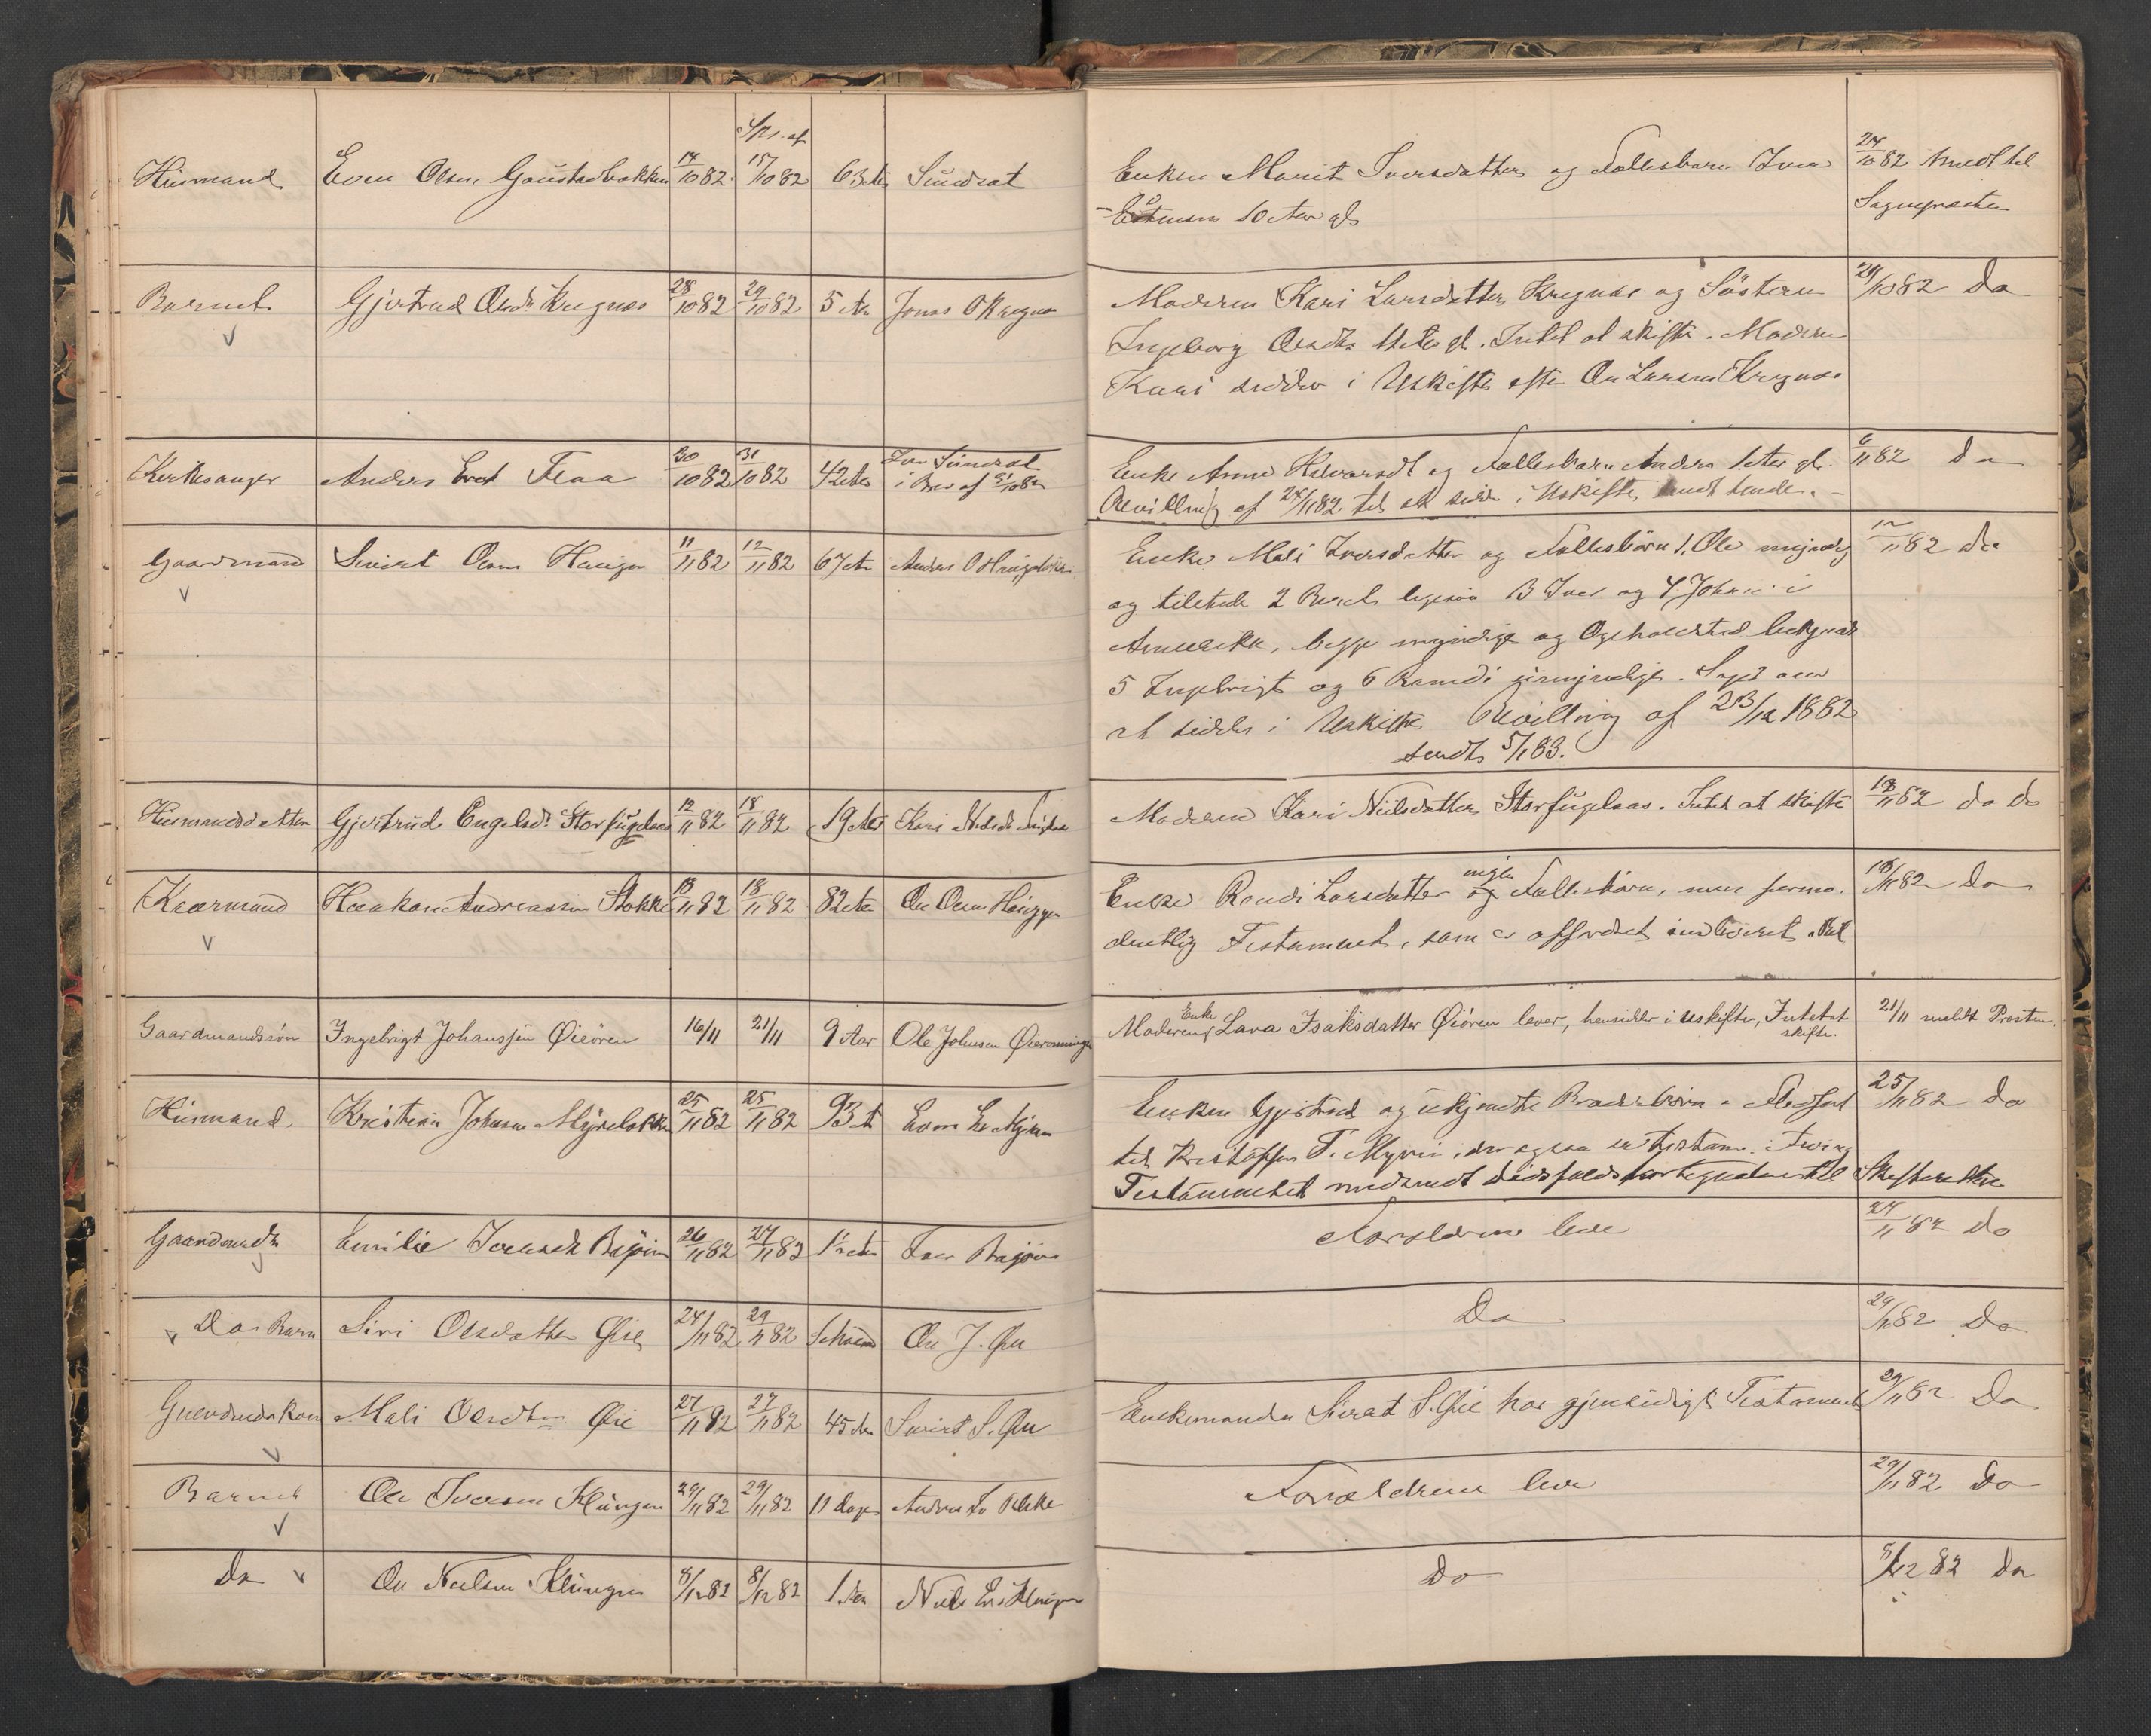 Husmand Even Olsen Gaustadbakken 14/10 82 15/10 82 63 Aar Sundset
Enken Marit Iversdatter og Fællesbarn Iver 24/10 82 Anmeldt til
10 Aar gl. Sognepræsten
Barnet Gjertrud Olsdr Kregnes 28/10 82 29/10 82 5 Aar Jonas O Kregnes
Moderen Kari Larsdatter Kregnes og Søsteren 29/10 82 Do
Ingeborg Olsdtr 11 Aar gl. Intet at skifte. Moderen
Kari sidder i Uskifte efter Ole Larsen Kregnes
Kirkesanger Anders Flaa 30/10 82 31/10 82 42 Aar
i Brev af
Enke Anne Halvorsdt og Fællesbarn Anders 1 Aar gl. 6/11 82 Do
Bevilling af 24/11 82 til at sidde i Uskifte, sendt hende.
Gaardmand Sivert Olsen Haugen 11/11 82 12/11 82 67 Aar Anders O
Enke Mali Iversdatter og Fællesbørn 1, Ole myndig 12/11 82 Do
og tilstede 2 Berit ligesaa 3 Iver og 4. Johan i
Amerika, begge myndige og Opholdssted bekjendt
5 Ingebrigt og 6 Randi umyndige. Søger om
at sidde i Uskifte Bevilling af 23/12 1882
sendt 5/1 83.
Husmandsdatter Gjertrud Engelsdr Storfuglaas 12/11 82 18/11 82 19 Aar Kari Nilsdt
Moderen Kari Nielsdatter Storfuglaas. Intet at skifte 18/11 82 do do
Kaarmand Haakon Andreassen Stokke 13/11 82 18/11 82 82 Aar Ole Olsen Haugen
Enke Randi Larsdatter ingen Fællesbørn, men formo.
dentlig Testament, som er affordret indleveret. 18/11 82 Do
Gaardmandssøn Ingebrigt Johanssen Øieøren 16/11 21/11 9 Aar Ole Johnsen Øierønningen
Moderen Enke Lava Isaksdatter Øiøren lever, hensidder i uskifte, Intet at skifte. 21/11 meldt Provsten.
Husmand Kristian Johnsen Myrebakken 25/11 82 25/11 82 93 A Even Myren
Enken Gjertrud og ukjendte Broderbørn 25/11 82 Do
til Kristoffer T. Myren, der ogsaa er testam.
Testamentet medsendt dødsfaldsfortegnelsen til Skifteretten
Gaardmdt Emilie 26/11 82 27/11 82 1½ Aar Iver
Forældrene lever 27/11 82 Do
Do Barn Siri Olsdatter Øie 24/11 82 29/11 82 Ole J. Øie
Do 29/11 82 Do
Gaardmdskone Mali Olsdtr Øie 27/11 82 27/11 82 45 Aar Sivert S. Øie
Enkemanden Sivert S. Øie har gjensidigt Testament 27/11 82 Do
Barnet Ole Iversen Klungen 29/11 82 29/11 82 11 dage Anders
Forældrene lever 29/11 82 Do
Do Ole Nielsen Klungen 8/12 82 8/12 82 1 Aar Niels E. Klungen
Do 8/12 82 Do